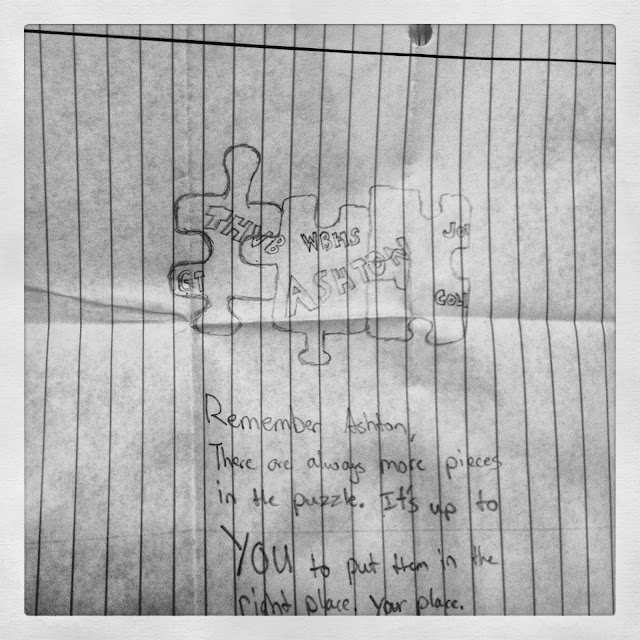 THVB
WBHS
ASHTON
Remember Ashton,
There are always more pieces
in the puzzle. It's up to
YOU to put them in the
right place. Your place.